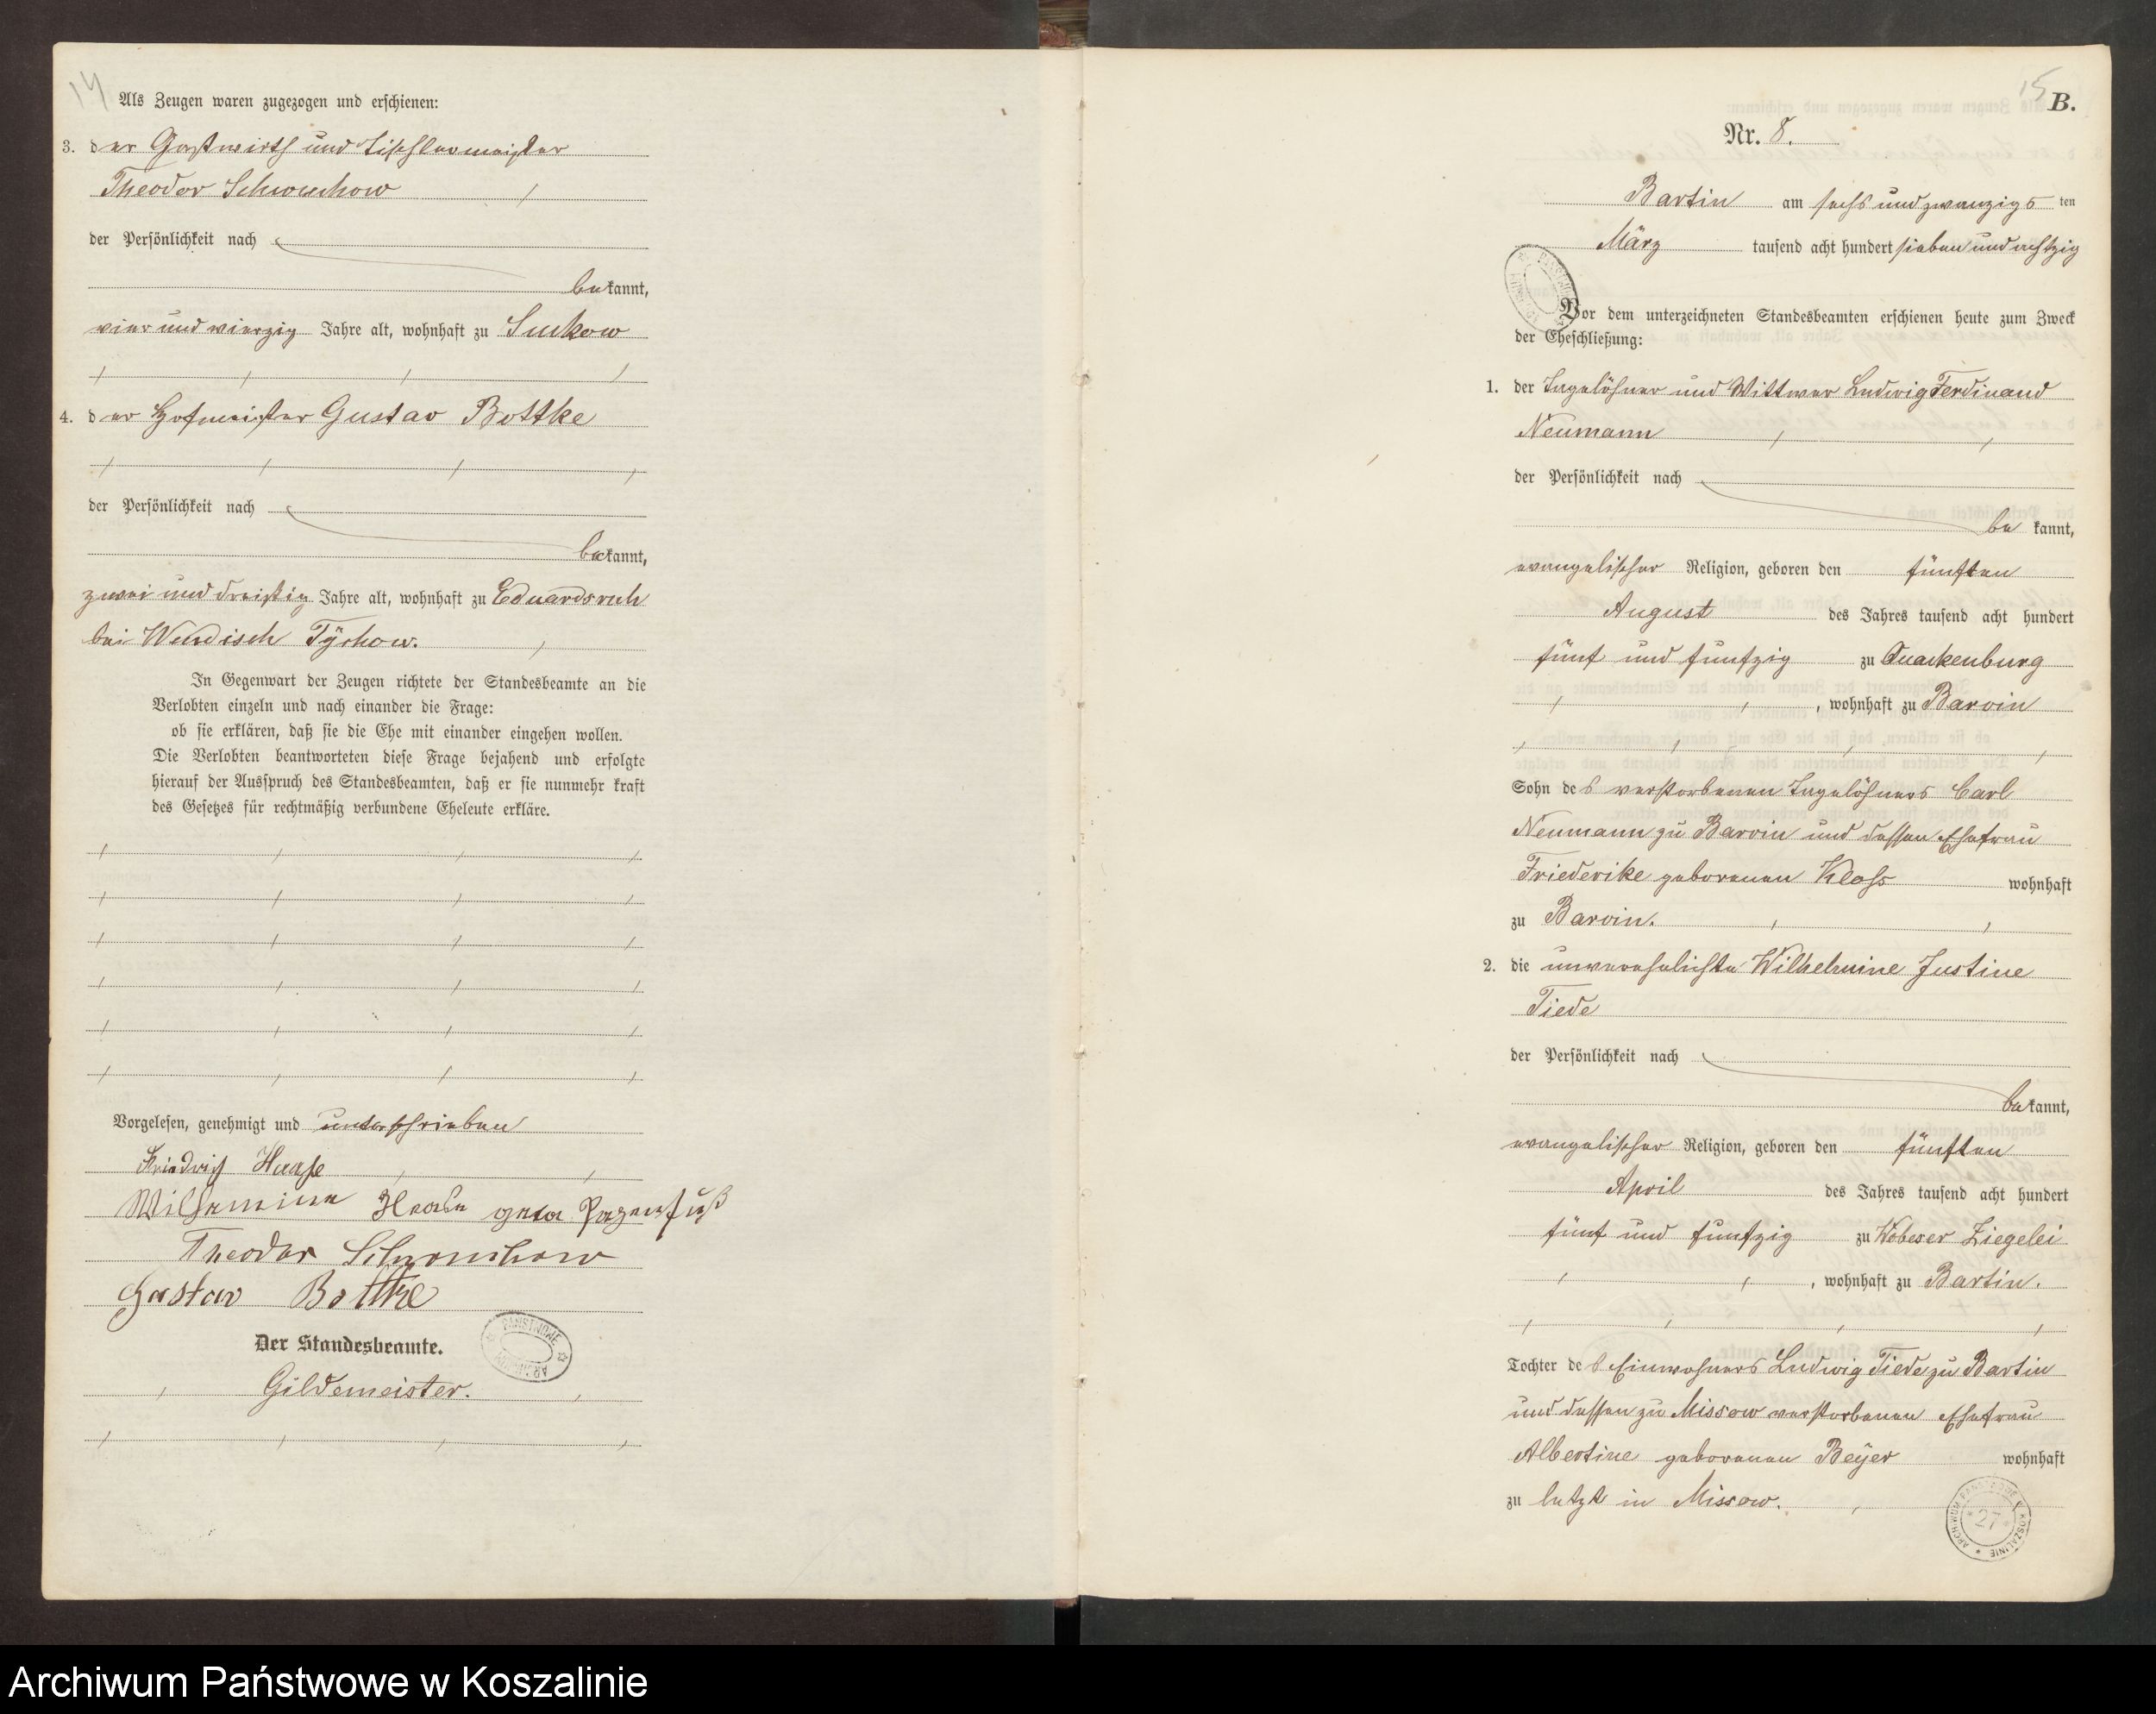 14
Als Zeugen waren zugezogen und erschienen:
3. der Gastwirth und Tischlermeister
Theodor Schwuchow
der Persönlichkeit nach
bekannt,
vier und vierzig Jahre alt, wohnhaft zu Suckow
4. der Hofmeister Gustav Bottke
der Persönlichkeit nach
bekannt,
zwei und dreißig Jahre alt, wohnhaft zu Eduardsruh
bei Wendisch Tÿchow.
In Gegenwart der Zeugen richtete der Standesbeamte an die
Verlobten einzeln und nach einander die Frage:
ob sie erklären, daß sie die Ehe mit einander eingehen wollen.
Die Verlobten beantworteten diese Frage bejahend und erfolgte
hierauf der Ausspruch des Standesbeamten, daß er sie nunmehr kraft
des Gesetzes für rechtmäßig verbundene Eheleute erkläre.
Vorgelesen, genehmigt und unterschrieben
Friedrich Haase
Wilhemine Haase
Theodor Schwuchow
Gustav Bottke
Der Standesbeamte.
Gildemeister.
15
B.
Nr. 8.
Bartin am sechs und zwanzigsten
März tausend acht hundert sieben und achtzig
Vor dem unterzeichneten Standesbeamten erschienen heute zum Zweck
der Eheschließung:
1. der Tagelöhner und Wittwer Ludwig Ferdinand
Neumann
der Persönlichkeit nach
bekannt,
evangelischer Religion, geboren den fünften
August des Jahres tausend acht hundert
fünf und funfzig zu Quackenburg
, wohnhaft zu Barvin
Sohn des verstorbenen Tagelöhners Carl
Neumann zu Barvin und dessen Ehefrau
Friederike geborenen Kloss wohnhaft
zu Barvin.
2. die unverehelichte Wilhelmine Justine
Tiede
der Persönlichkeit nach
bekannt,
evangelischer Religion, geboren den fünften
April des Jahres tausend acht hundert
fünf und funfzig zu Wobeser Ziegelei
, wohnhaft zu Bartin.
Tochter des Einwohners Ludwig Tiede zu Bartin
und dessen zu Missow verstorbenen Ehefrau
Albertine geborenen Beÿer wohnhaft
zu letzt in Missow.
ARCHIWUM PAŃSTWOWE W KOSZALINIE
27
Archiwum Państwowe w Koszalinie